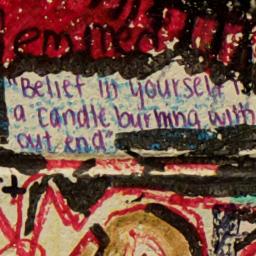 "Belief in yourself i
a candle burning with
out end"